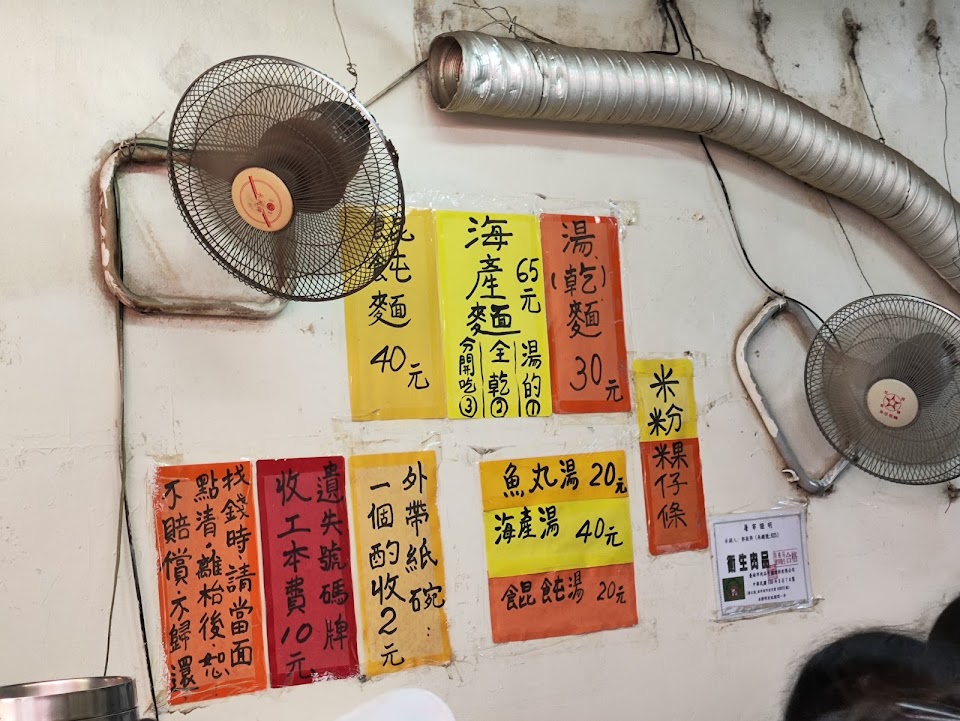 湯(乾)麵
30元
海產麵
65元
湯的①
全乾②
分開吃③
餛飩麵
40元
米粉
粿仔條
魚丸湯 20元
海產湯 40元
餛飩湯 20元
外帶紙碗
一個酌收2元
遺失號碼牌
收工本費10元
找錢時請當面
點清·離枱後·恕
不賠償·不歸還
衛生肉品